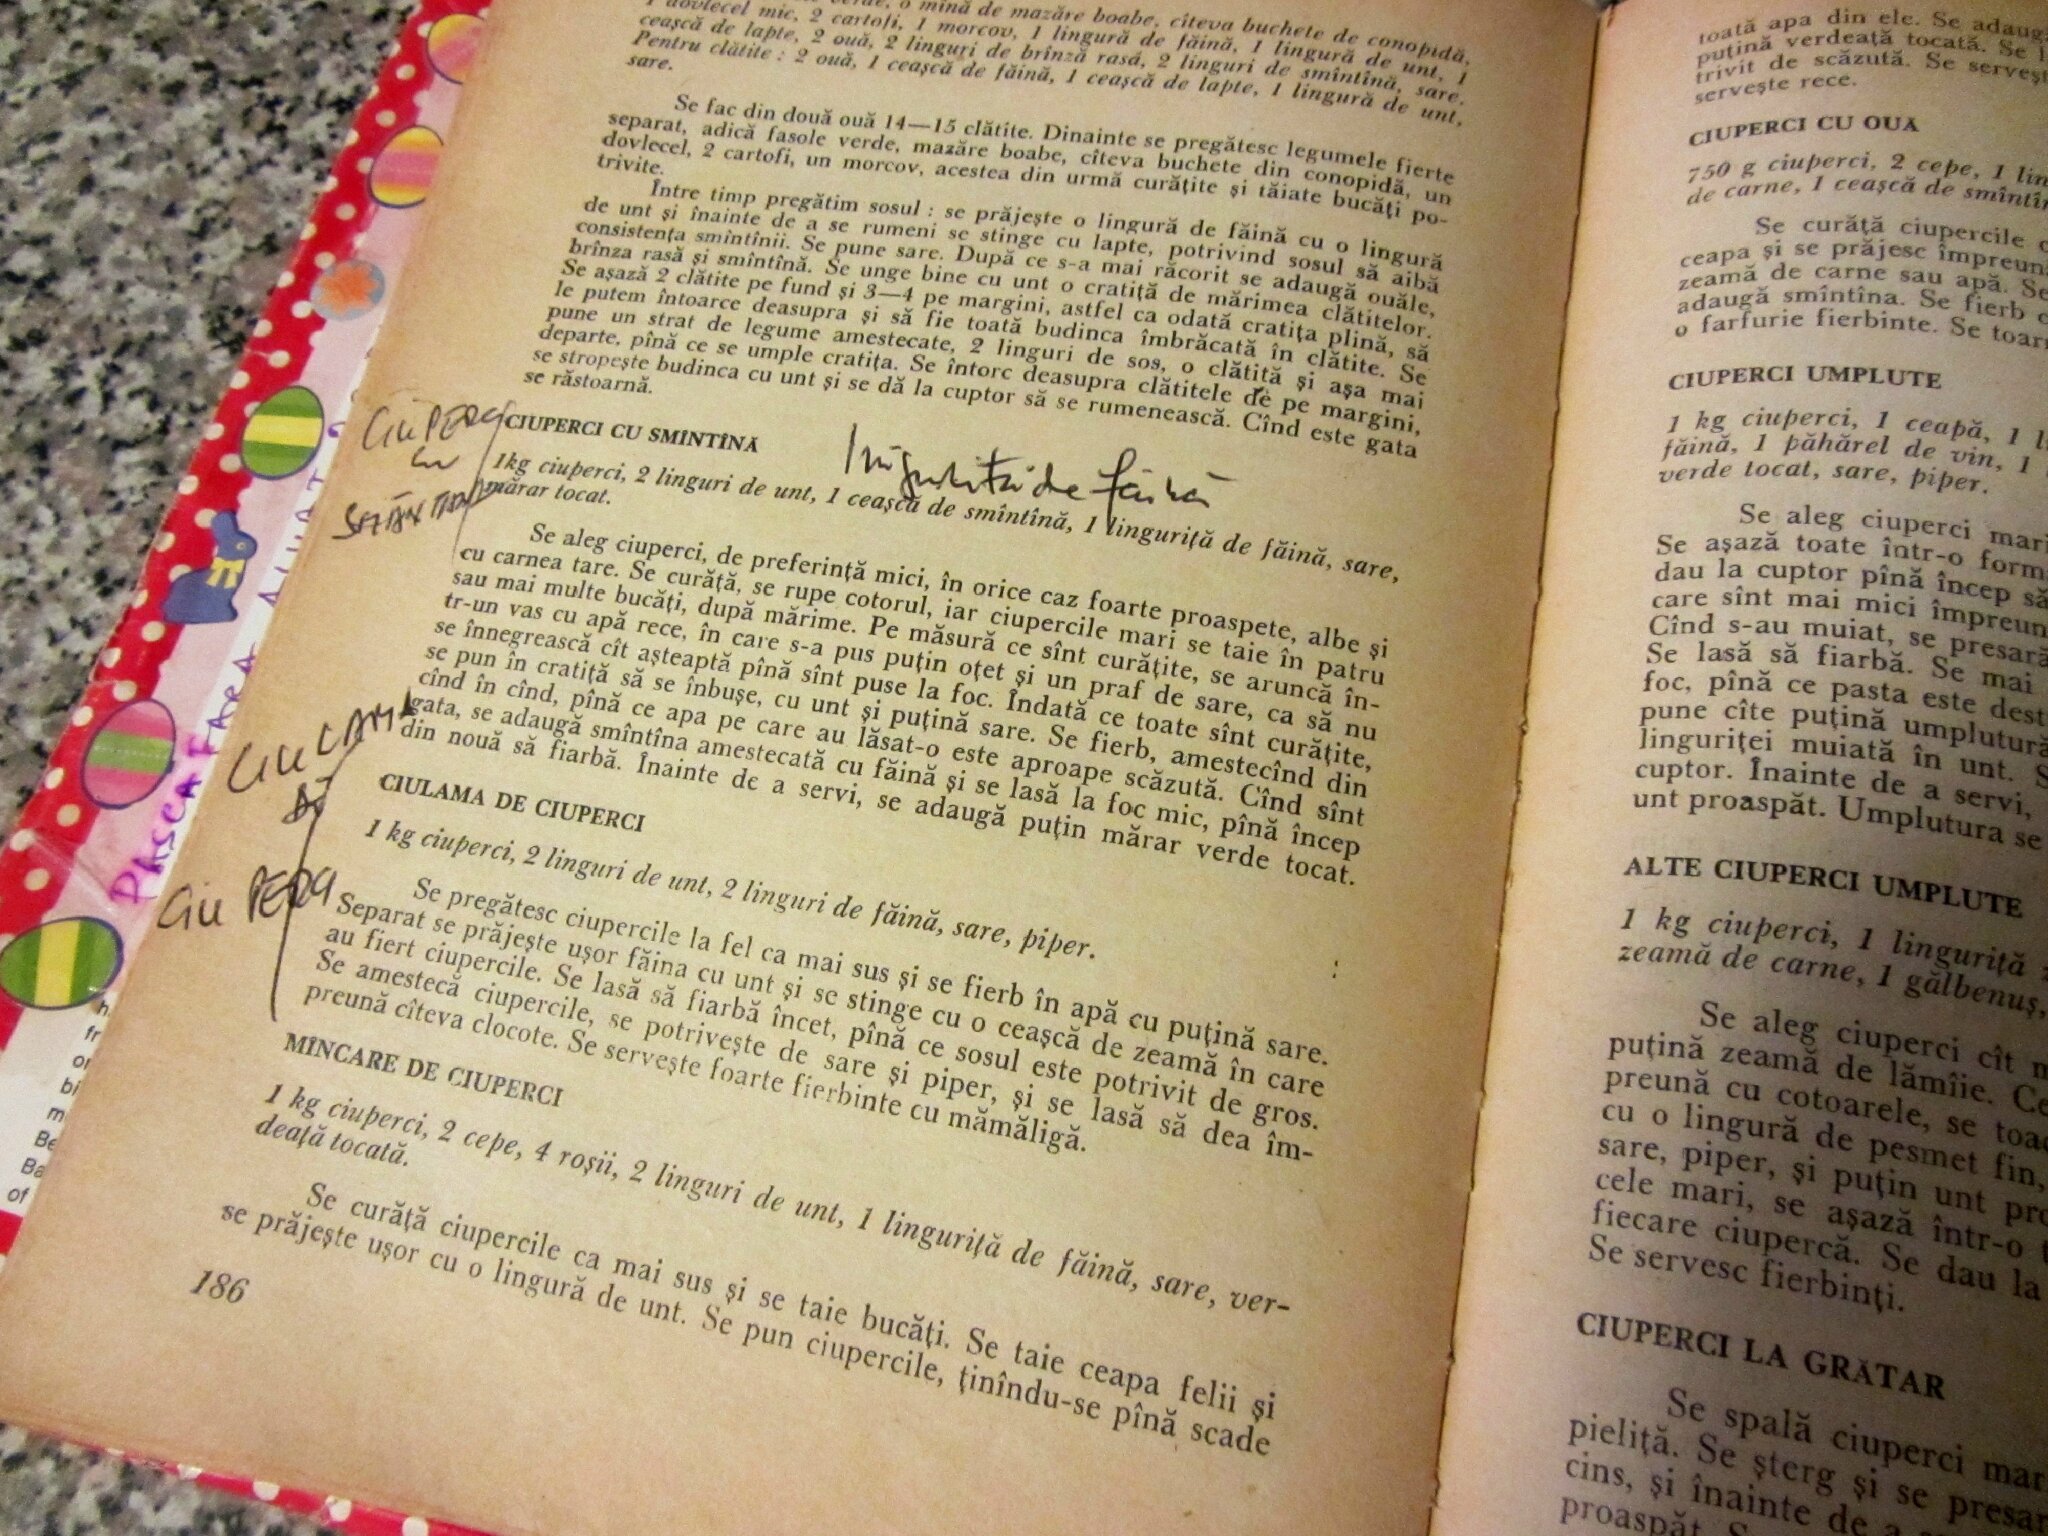 verde, o mînă de mazăre boabe, cîteva buchete de conopidă,
1 dovlecel mic, 2 cartofi, 1 morcov, 1 lingură de făină, 1 lingură de unt, 1
ceaşcă de lapte, 2 ouă, 2 linguri de brînză rasă, 2 linguri de smîntînă, sare.
Pentru clătite : 2 ouă, 1 ceaşcă de făină, 1 ceaşcă de lapte, 1 lingură de unt,
sare.
Se fac din două ouă 14—15 clătite. Dinainte se pregătesc legumele fierte
separat, adică fasole verde, mazăre boabe, cîteva buchete din conopidă, un
dovlecel, 2 cartofi, un morcov, acestea din urmă curăţite şi tăiate bucăţi po-
trivite.
Între timp pregătim sosul : se prăjeşte o lingură de făină cu o lingură
de unt şi înainte de a se rumeni se stinge cu lapte, potrivind sosul să aibă
consistenţa smîntînii. Se pune sare. După ce s-a mai răcorit se adaugă ouăle,
brînza rasă şi smîntînă. Se unge bine cu unt o cratiţă de mărimea clătitelor.
Se aşază 2 clătite pe fund şi 3—4 pe margini, astfel ca odată cratiţa plină, să
le putem întoarce deasupra şi să fie toată budinca îmbrăcată în clătite. Se
pune un strat de legume amestecate, 2 linguri de sos, o clătită şi aşa mai
departe, pînă ce se umple cratiţa. Se întorc deasupra clătitele de pe margini,
se stropeşte budinca cu unt şi se dă la cuptor să se rumenească. Cînd este gata
se răstoarnă.
CIUPERCI
CIUPERCI CU SMÎNTÎNĂ
1 linguriţă de făină
1kg ciuperci, 2 linguri de unt, 1 ceaşcă de smîntînă, 1 linguriţă de făină, sare,
mărar tocat.
Se aleg ciuperci, de preferinţă mici, în orice caz foarte proaspete, albe şi
cu carnea tare. Se curăţă, se rupe cotorul, iar ciupercile mari se taie în patru
sau mai multe bucăţi, după mărime. Pe măsură ce sînt curăţite, se aruncă în-
tr-un vas cu apă rece, în care s-a pus puţin oţet şi un praf de sare, ca să nu
se înnegrească cît aşteaptă pînă sînt puse la foc. Îndată ce toate sînt curăţite,
se pun în cratiţă să se înbuşe, cu unt şi puţină sare. Se fierb, amestecînd din
cînd în cînd, pînă ce apa pe care au lăsat-o este aproape scăzută. Cînd sînt
gata, se adaugă smîntîna amestecată cu făină şi se lasă la foc mic, pînă încep
din nouă să fiarbă. Înainte de a servi, se adaugă puţin mărar verde tocat.
CIULAMA
DE
CIUPERCI
CIULAMA DE CIUPERCI
1 kg ciuperci, 2 linguri de unt, 2 linguri de făină, sare, piper.
Se pregătesc ciupercile la fel ca mai sus şi se fierb în apă cu puţină sare.
Separat se prăjeşte uşor făina cu unt şi se stinge cu o ceaşcă de zeamă în care
au fiert ciupercile. Se lasă să fiarbă încet, pînă ce sosul este potrivit de gros.
Se amestecă ciupercile, se potriveşte de sare şi piper, şi se lasă să dea îm-
preună cîteva clocote. Se serveşte foarte fierbinte cu mămăligă.
MÎNCARE DE CIUPERCI
1 kg ciuperci, 2 cepe, 4 roşii, 2 linguri de unt, 1 linguriţă de făină, sare, ver-
deaţă tocată.
Se curăţă ciupercile ca mai sus şi se taie bucăţi. Se taie ceapa felii şi
se prăjeşte uşor cu o lingură de unt. Se pun ciupercile, ţinîndu-se pînă scade
186
toată apa din ele. Se adaugă
puţină verdeaţă tocată. Se
trivit de scăzută. Se serveşt
serveşte rece.
CIUPERCI CU OUĂ
750 g ciuperci, 2 cepe, 1 lin
de carne, 1 ceaşcă de smîntîn
Se curăţă ciupercile
ceapa şi se prăjesc împreun
zeamă de carne sau apă. Se
adaugă smîntîna. Se fierb
o farfurie fierbinte. Se toar
CIUPERCI UMPLUTE
1 kg ciuperci, 1 ceapă, 1
făină, 1 păhărel de vin, 1
verde tocat, sare, piper.
Se aleg ciuperci mari
Se aşază toate într-o form
dau la cuptor pînă încep să
care sînt mai mici împreun
Cînd s-au muiat, se presară
Se lasă să fiarbă. Se mai
foc, pînă ce pasta este dest
pune cîte puţină umplutură
linguriţei muiată în unt. S
cuptor. Înainte de a servi,
unt proaspăt. Umplutura se
ALTE CIUPERCI UMPLUTE
1 kg ciuperci, 1 linguriţă
zeamă de carne, 1 gălbenuş,
Se aleg ciuperci cît
puţină zeamă de lămîie. Ce
preună cu cotoarele, se toac
cu o lingură de pesmet fin,
sare, piper, şi puţin unt pro
cele mari, se aşază într-o
fiecare ciupercă. Se dau la
Se servesc fierbinţi.
CIUPERCI LA GRĂTAR
Se spală ciuperci mar
pieliţă. Se şterg şi se presar
cins, şi înainte de a
proaspăt.
FARA
h
fr
or
bi
m
Be
Ba
of